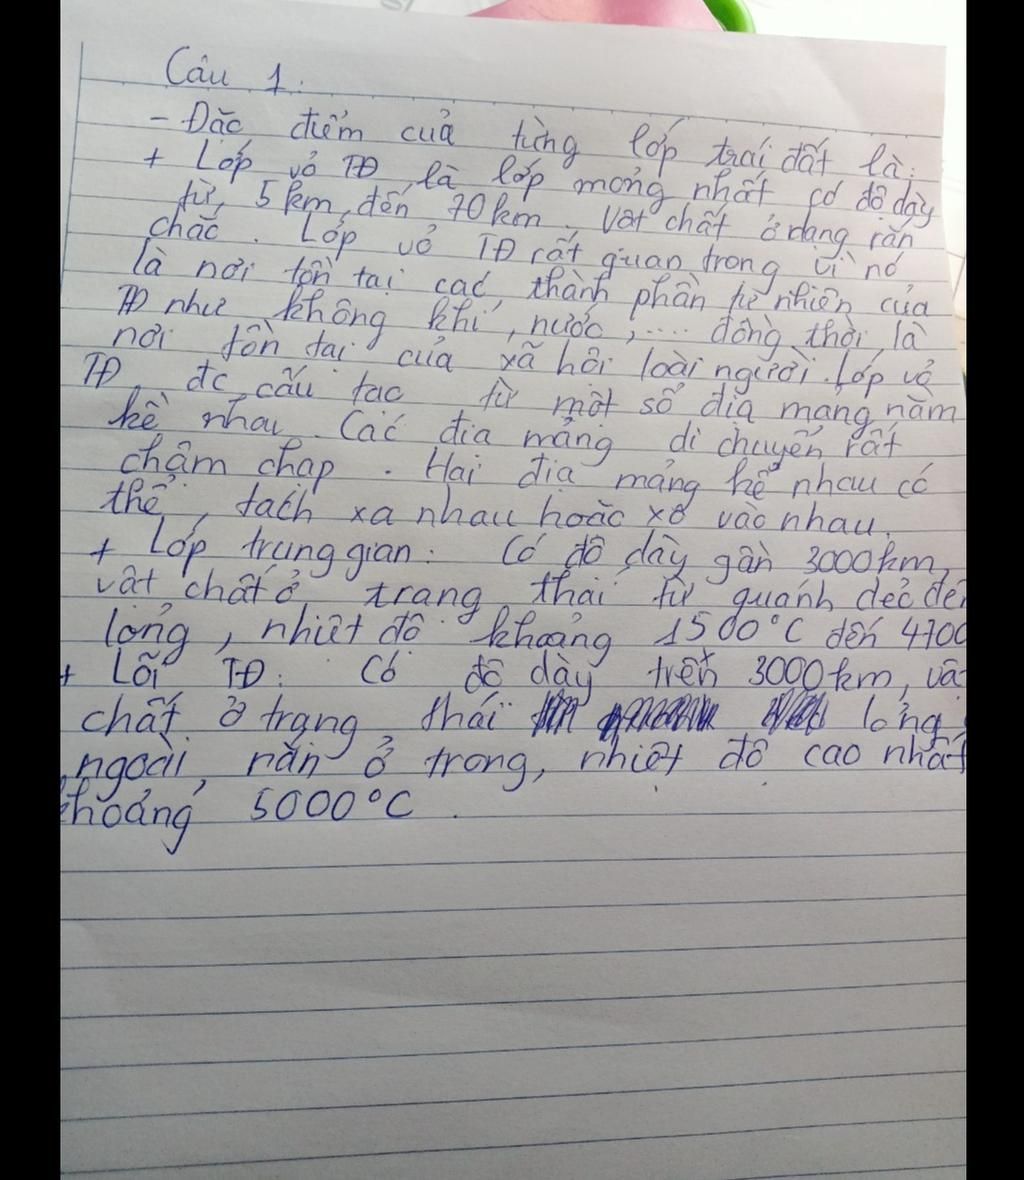 Câu 1.
- Đặc điểm của từng lớp trái đất là:
+ Lớp vỏ TĐ là lớp mỏng nhất có độ dày
từ 5km đến 70km. Vật chất ở dạng rắn
chắc. Lớp vỏ TĐ rất quan trọng vì nó
là nơi tồn tại các thành phần tự nhiên của
TĐ như không khí, nước,.... đồng thời là
nơi tồn tại của xã hội loài người. Lớp vỏ
TĐ đc cấu tạo từ một số địa mảng nằm
kề nhau. Các địa mảng di chuyển rất
chậm chạp. Hai địa mảng kề nhau có
thể tách xa nhau hoặc xô vào nhau.
+ Lớp trung gian: Có độ dày gần 3000km,
vật chất ở trạng thái từ quánh dẻo đến
lỏng, nhiệt độ khoảng 1500°C đến 4700
+ Lõi TĐ: Có độ dày trên 3000km, vậ
chất ở trạng thái lỏng
ngoài, rắn ở trong, nhiệt độ cao nhất
khoảng 5000°C.